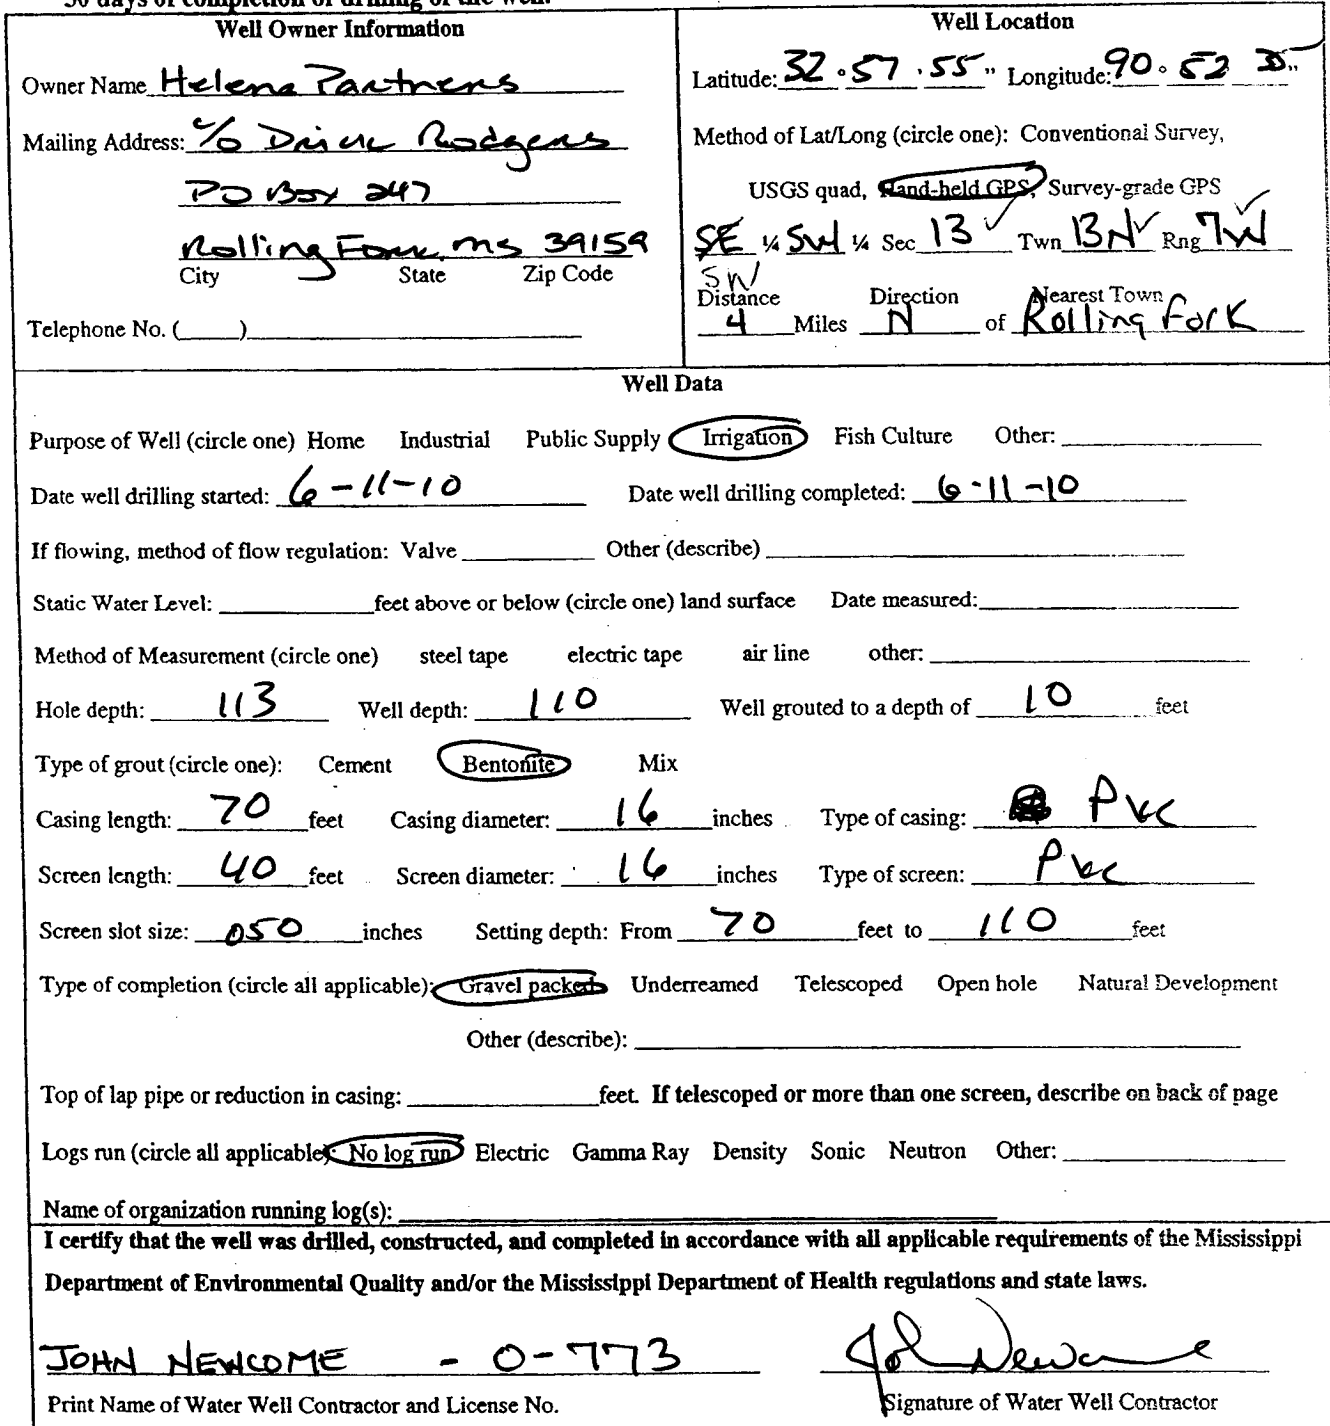 30 days of completion of drilling of the well.
Well Owner Information
Owner Name Helena Partners
Mailing Address: c/o Rodgers
PO Box 247
Rolling Fork, ms 39159
City State Zip Code
Telephone No. (____)
Well Location
Latitude: 32 ° 57 ' 55 " Longitude: 90 ° 52 "
Method of Lat/Long (circle one): Conventional Survey,
USGS quad, Hand-held GPS, Survey-grade GPS
SE ¼ SW ¼ Sec 13 ✓ Twn 13N ✓ Rng 7W ✓
SW
Distance Direction Nearest Town
4 Miles N of Rolling Fork
Well Data
Purpose of Well (circle one) Home Industrial Public Supply Irrigation Fish Culture Other:
Date well drilling started: 6-11-10 Date well drilling completed: 6-11-10
If flowing, method of flow regulation: Valve Other (describe)
Static Water Level: feet above or below (circle one) land surface Date measured:
Method of Measurement (circle one) steel tape electric tape air line other:
Hole depth: 113 Well depth: 110 Well grouted to a depth of 10 feet
Type of grout (circle one): Cement Bentonite Mix
Casing length: 70 feet Casing diameter: 16 inches Type of casing: Pvc
Screen length: 40 feet Screen diameter: 16 inches Type of screen: Pvc
Screen slot size: .050 inches Setting depth: From 70 feet to 110 feet
Type of completion (circle all applicable): Gravel packed Underreamed Telescoped Open hole Natural Development
Other (describe):
Top of lap pipe or reduction in casing: feet. If telescoped or more than one screen, describe on back of page
Logs run (circle all applicable): No log run Electric Gamma Ray Density Sonic Neutron Other:
Name of organization running log(s):
I certify that the well was drilled, constructed, and completed in accordance with all applicable requirements of the Mississippi
Department of Environmental Quality and/or the Mississippi Department of Health regulations and state laws.
JOHN NEWCOME - 0-773 John Newcome
Print Name of Water Well Contractor and License No. Signature of Water Well Contractor